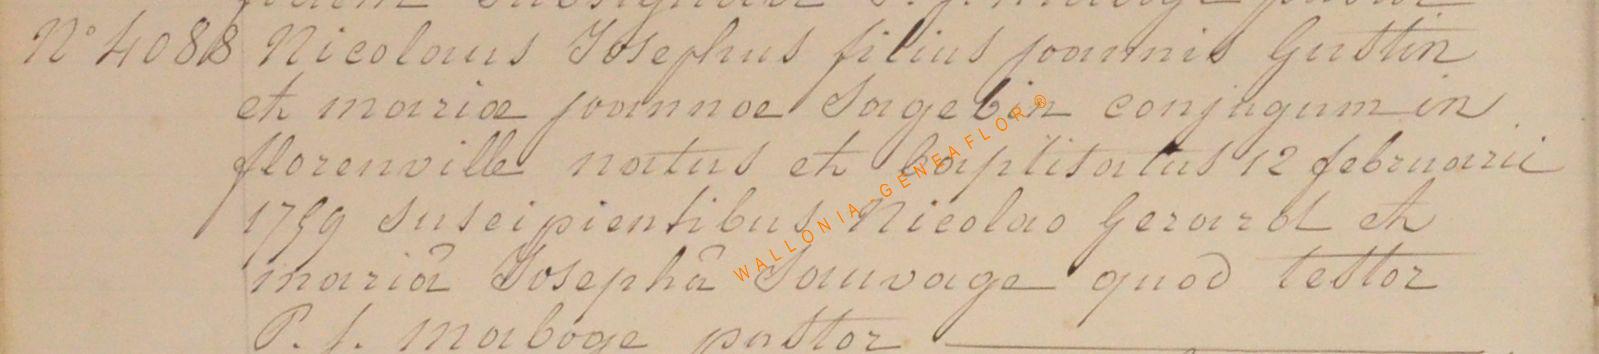 N° 4088 Nicolaus Josephus filius joannis Gustin
et mariæ joannæ Sagebin conjugum in
florenville natus et baptisatus 12 februarii
1759 suscipientibus Nicolao Gerard et
mariâ Josephâ Sauvage quod testor
P. J. Maboge pastor
WALLONIA-GENEAFLOR®